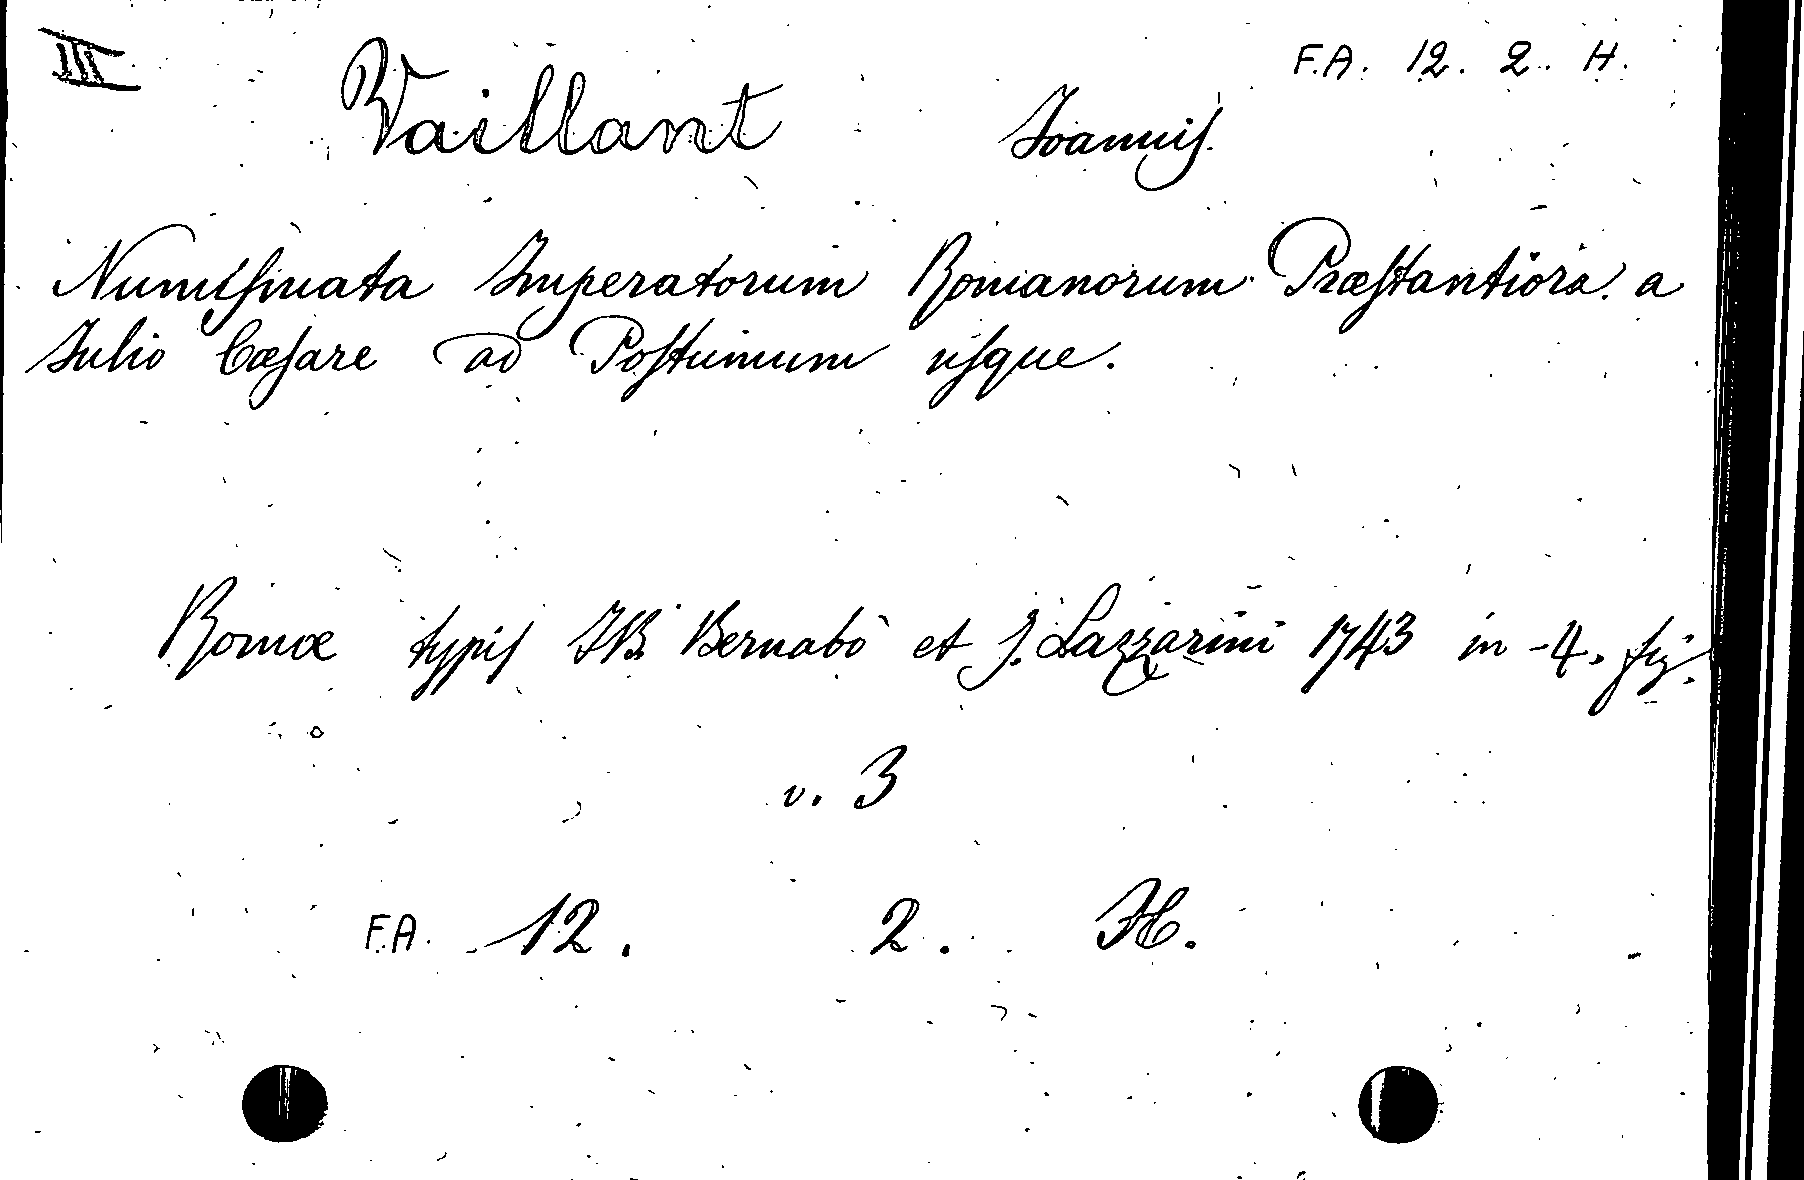 III
F.A. 12. 2. H.
Vaillant Joannis.
Numiſmata Imperatorum Romanorum Præſtantiora. a
Julio Cæſare ad Poſtumum uſque.
Romæ typis J.B. Bernabò et J. Lazzarini 1743 in-4. fig.
v. 3
F.A. 12. 2. H.